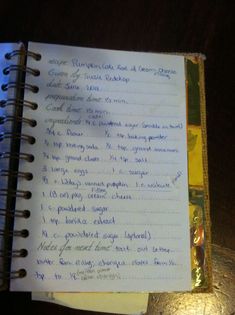 recipe: Pumpkin Cake Roll w/ Cream Cheese
Filling
Given by: Susie Redekop
preparation time: 45 min.
Cook time: 15 min.
ingredients: 1/4 c. powdered sugar
3/4 c. flour 1/2 tsp. baking powder
1/2 tsp. baking soda 1/2 tsp. ground cinnamon
1/2 tsp. ground cloves 1/4 tsp. salt
3 large eggs 1 c. sugar
2/3 c. Libby's canned pumpkin 1 c. walnuts
Filling
1 (8 oz) pkg. cream cheese
1 c. powdered sugar
1 tsp. vanilla extract
1/4 c. powdered sugar (optional)
Notes for next time: took out
butter from filling, changed cloves from 1/2
tsp to